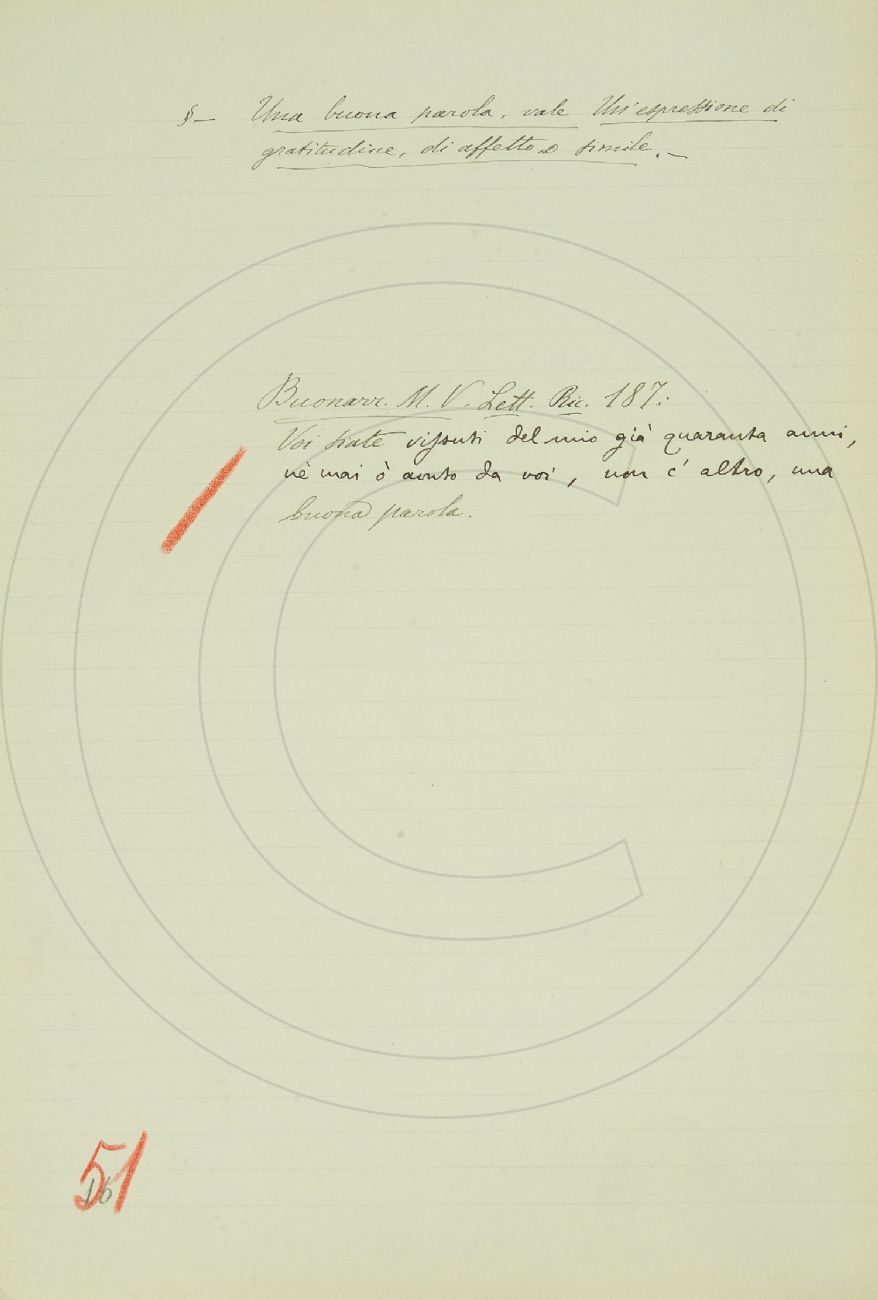 §— Una buona parola, vale Un'espressione di
gratitudine, di affetto o simile. —
Buonarr. M. V. Lett. Ric. 187:
Voi siate vissuti del mio già quaranta anni,
nè mai ò avuto da voi, non c' altro, una
buona parola.
51
16